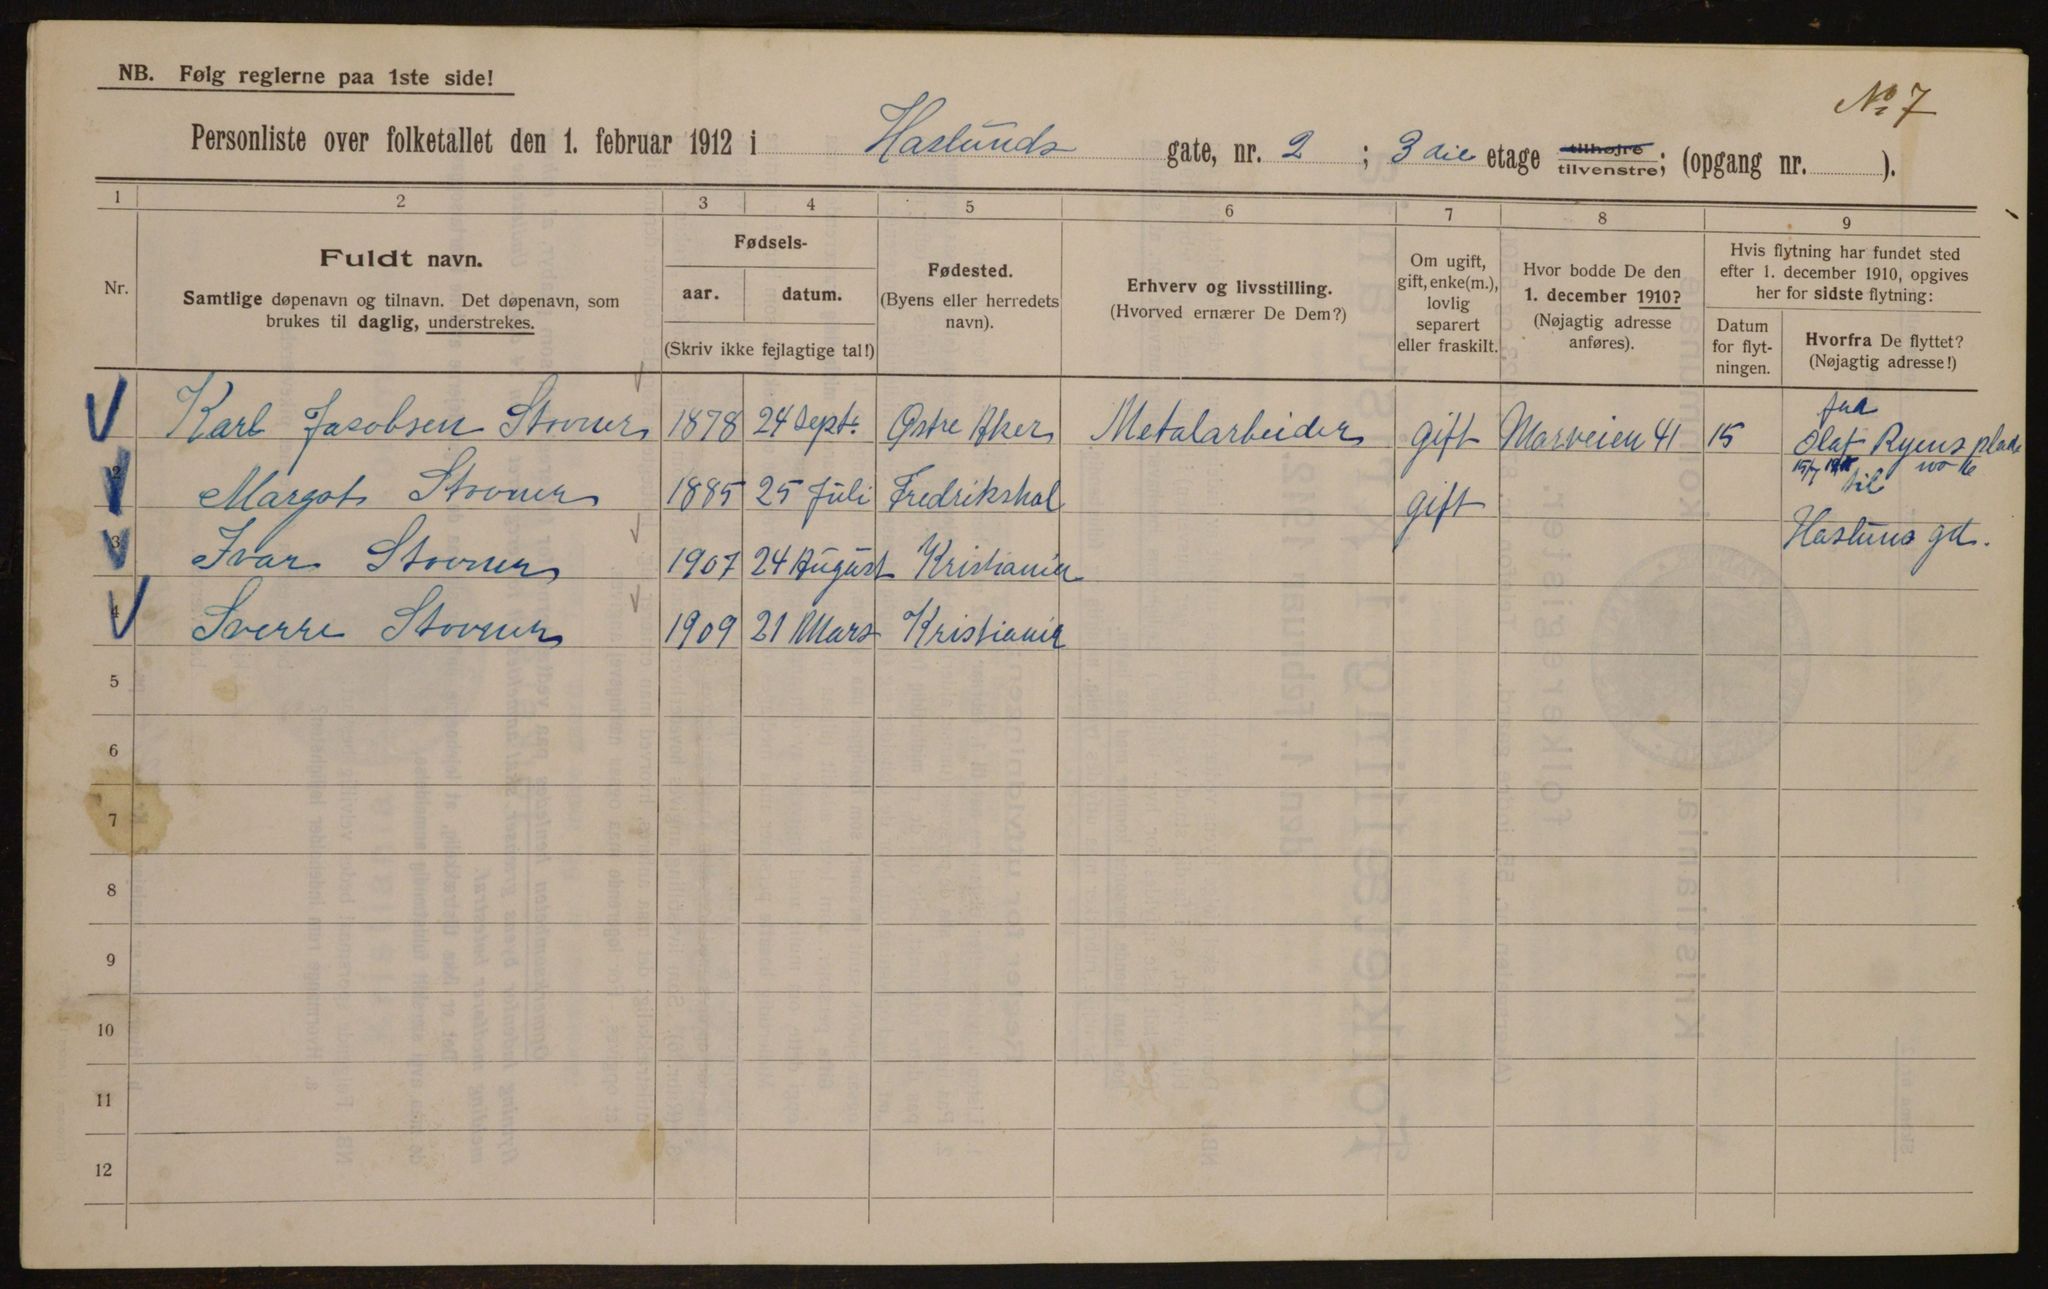 NB. Følg reglerne paa 1ste side!
No 7
Personliste over folketallet den 1. februar 1912 i Haslunds gate, nr. 2 ; 3 die etage tilhøjre tilvenstre; (opgang nr. ).
1 2 3 4 5 6 7 8 9
Nr.
Fuldt navn.
Samtlige døpenavn og tilnavn. Det døpenavn, som
brukes til daglig, understrekes.
Fødsels-
aar. datum.
(Skriv ikke fejlagtige tal!)
Fødested.
(Byens eller herredets
navn).
Erhverv og livsstilling.
(Hvorved ernærer De Dem?)
Om ugift,
gift, enke(m.),
lovlig
separert
eller fraskilt.
Hvor bodde De den
1. december 1910?
(Nøjagtig adresse
anføres).
Hvis flytning har fundet sted
efter 1. december 1910, opgives
her for sidste flytning:
Datum
for flyt-
ningen.
Hvorfra De flyttet?
(Nøjagtig adresse!)
Karl Jacobsen Stovner 1878 24 Sept. Østre Aker Metalarbeider gift Marveien 41 15 fra Olaf Ryens plads
2 Margot Stovner 1885 25 Juli Fredrikshal gift til
3 Ivar Stovner 1907 24 August Kristiania Hasluns gt.
4 Sverre Stovner 1909 21 Mars Kristiania
5
6
7
8
9
10
11
12